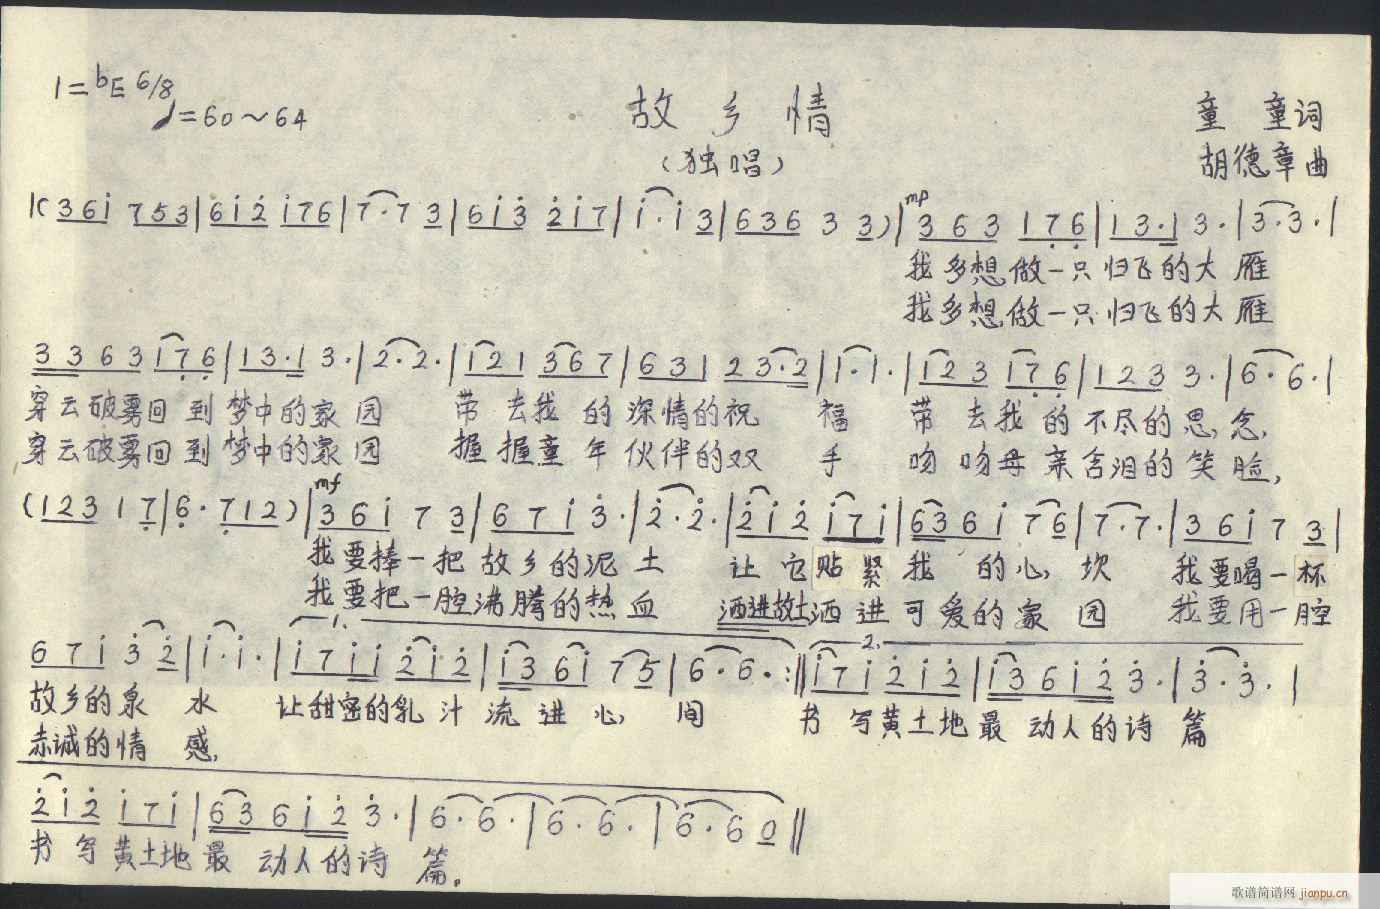 1=bE 6/8
♩=60～64
故 乡 情
（独唱）
童 童词
胡德章曲
|( 3 6 i 7 5 3 | 6 i 2 i 7 6 | 7 · 7 3 | 6 i 3 2 i 7 | i · i 3 | 6 3 6 3 3 ) | mp 3 6 3 1 7 6 | 1 3 · 1 3 · | 3 · 3 · |
我多想做一只归飞的大雁
我多想做一只归飞的大雁
3 3 6 3 1 7 6 | 1 3 · 1 3 · | 2 · 2 · | 1 2 1 3 6 7 | 6 3 1 2 3 · 2 | 1 · 1 · | 1 2 3 1 7 6 | 1 2 3 3 · | 6 · 6 · |
穿云破雾回到梦中的家园 带去我的深情的祝福 带去我的不尽的思念,
穿云破雾回到梦中的家园 握握童年伙伴的双手 吻吻母亲含泪的笑脸,
( 1 2 3 1 7 | 6 · 7 1 2 ) | mf 3 6 i 7 3 | 6 7 i 3 · | 2 · 2 · | 2 i 2 i 7 i | 6 3 6 i 7 6 | 7 · 7 · | 3 6 i 7 3 |
我要捧一把故乡的泥土 让它贴紧我的心坎 我要喝一杯
我要把一腔沸腾的热血 洒进故土洒进可爱的家园 我要用一腔
6 7 i 3 2 | i · i · | 1. i 7 i i 2 i 2 | i 3 6 i 7 5 | 6 · 6 · :|| 2. i 7 i 2 i 2 | i 3 6 i 2 3 · | 3 · 3 · |
故乡的泉水 让甜密的乳汁流进心间 书写黄土地最动人的诗篇
赤诚的情感,
2 i 2 i 7 i | 6 3 6 i 2 3 · | 6 · 6 · | 6 · 6 · | 6 · 6 0 ||
书写黄土地最动人的诗篇。
歌谱简谱网 jianpu.cn